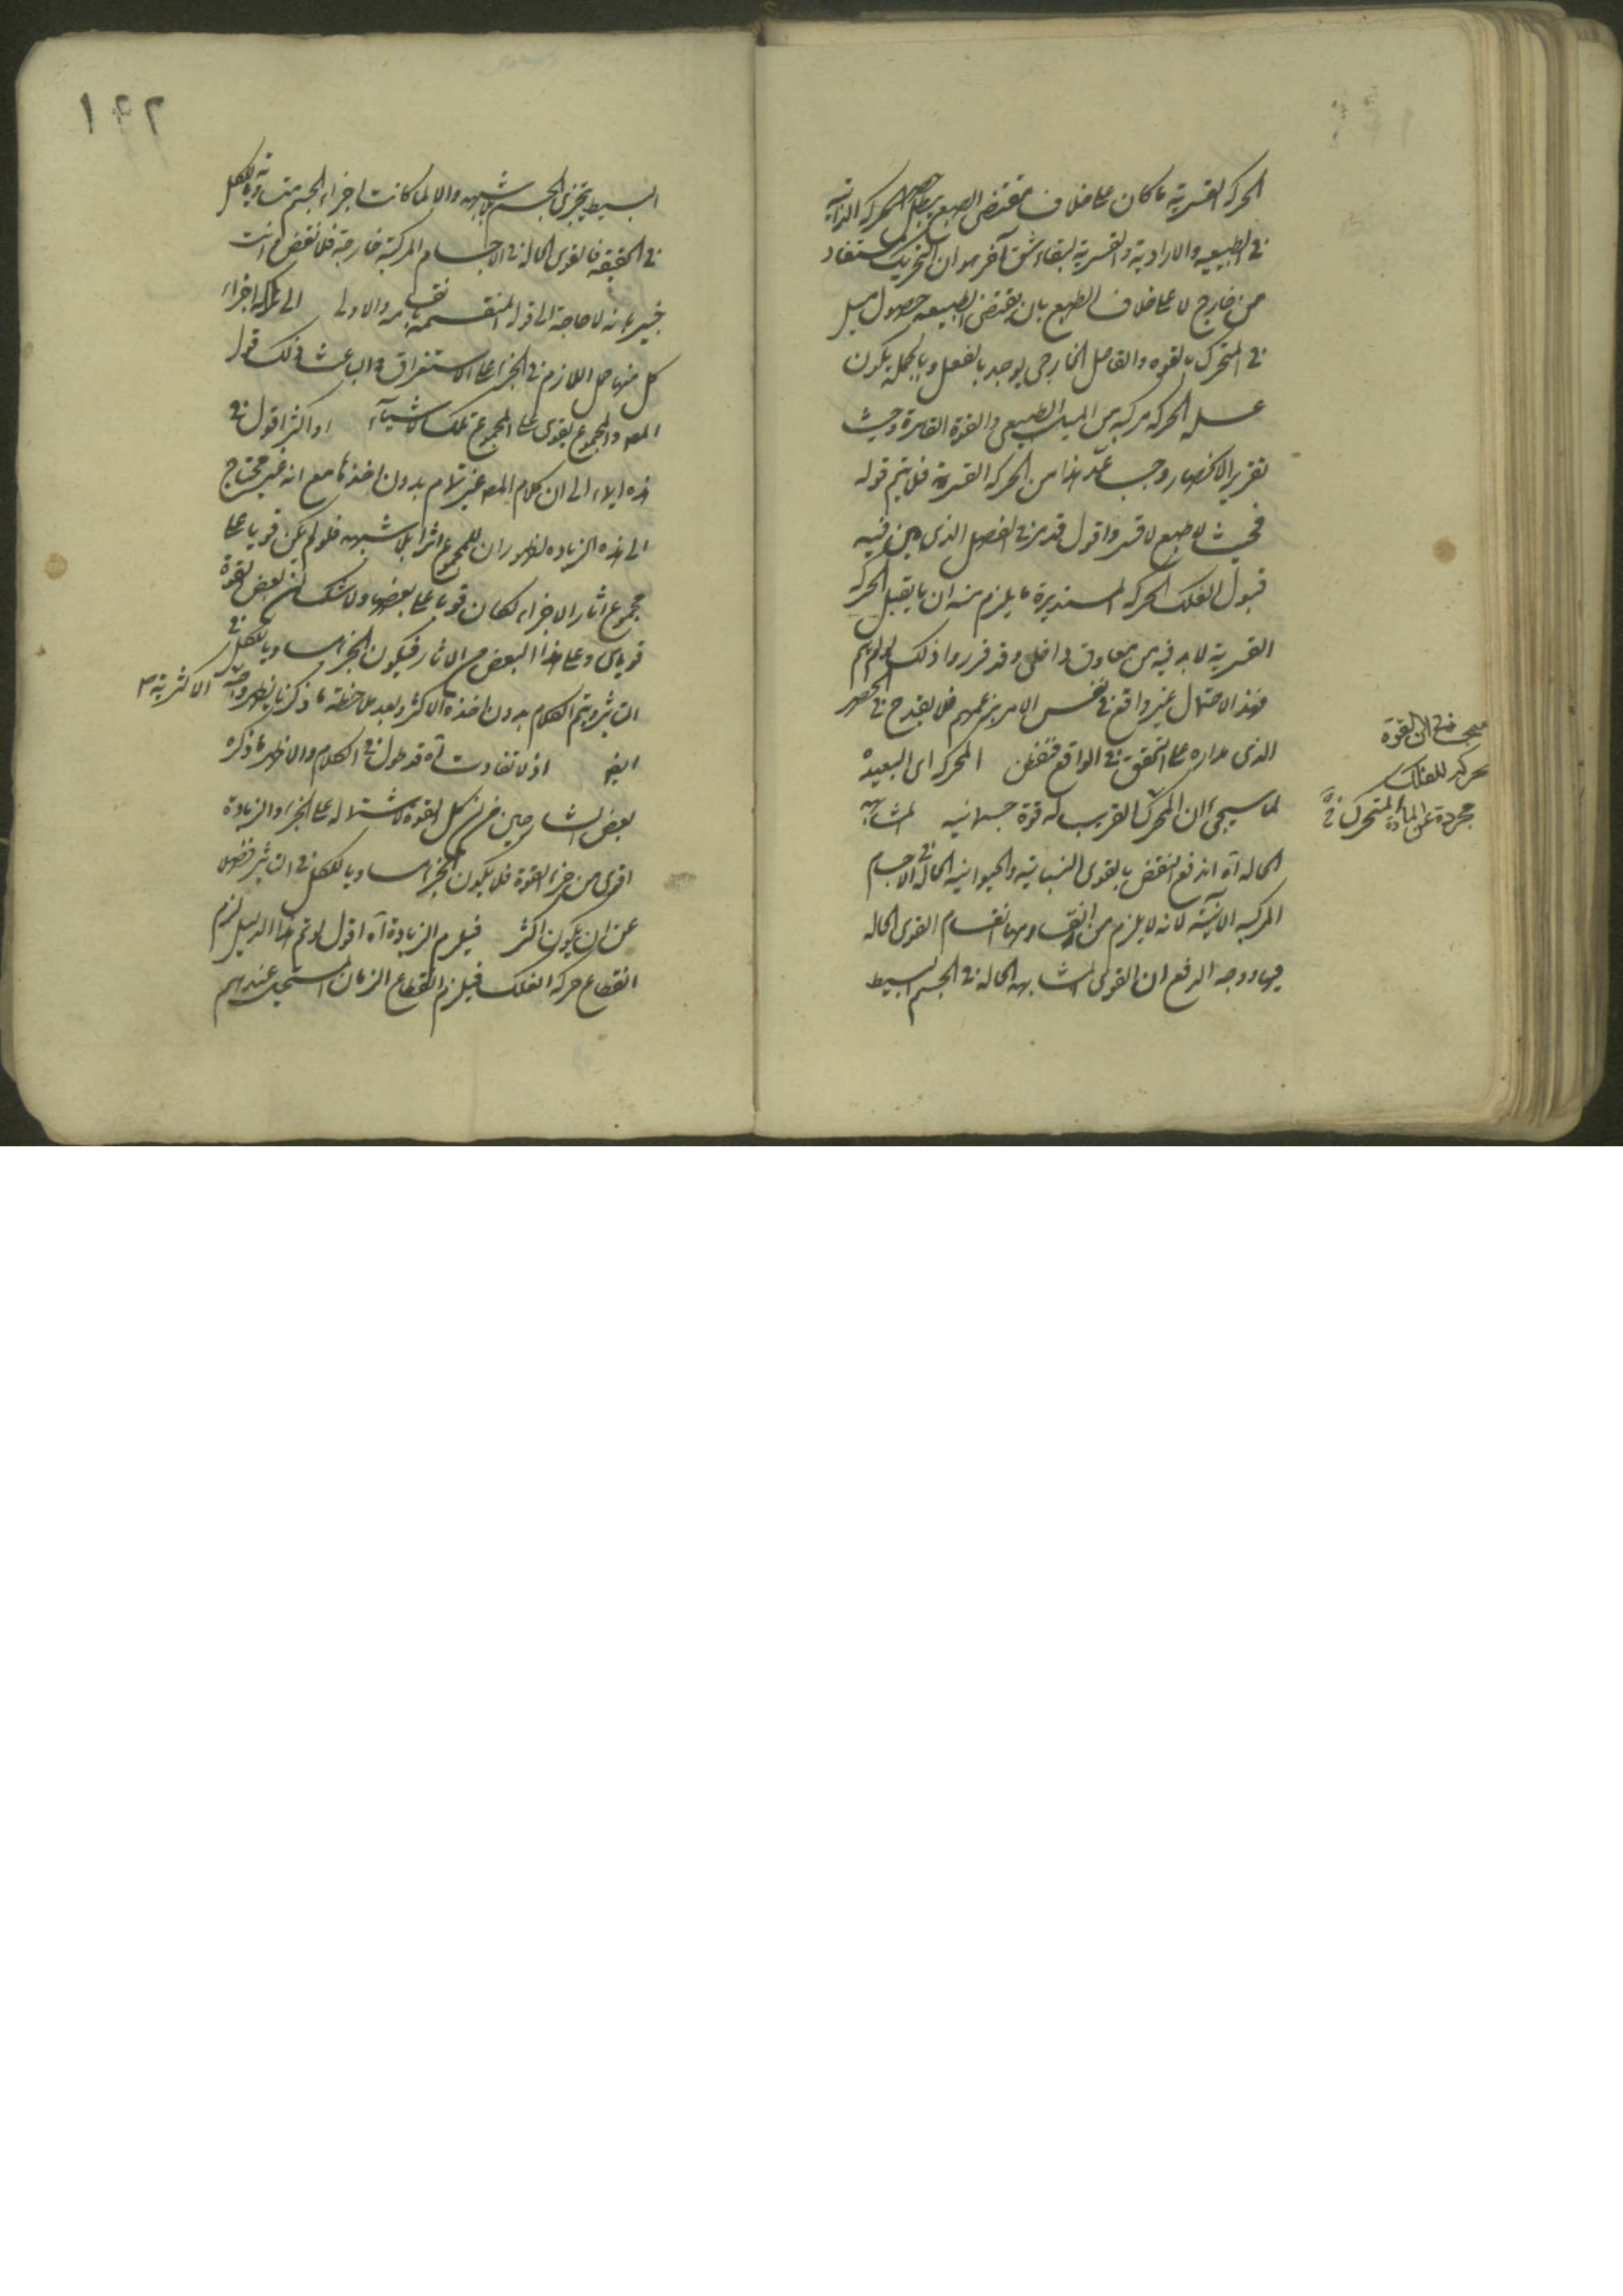 الحركة القسرية ما كان على خلاف مقتضى الطبع يبطل حصر الحركة الذاتية
في الطبيعية والارادية والقسرية لبقاء شق آخر هو ان التحريك مستفاد
من خارج لا على خلاف الطبع بان يقتضى الطبيعة حصول ميل
في المتحرك بالقوه والفاعل الخارجى يوجد بالفعل وبالجملة يكون
علة الحركة مركبة من الميل الطبيعى والقوة القاسرة وحيث
تقرير الانحصار وجب عد هذا من الحركة القسرية فلا يتم قوله
فحيث لا طبع لا قسر واقول قد مر في الفصل الذى بين فيه
قبول الفلك الحركة المستديرة ما يلزم منه ان ما يقبل الحركة
القسرية لا بد فيه من معاوق داخلى وقد قرروا ذلك لو لم يتم
فهذا الاحتمال غير واقع في نفس الامر بزعمهم فلا يقدح في الحصر
الذى مداره على التحقق في الواقع فتفطن المحركة اى البعيدة
لما سيجئ ان المحرك القريب له قوة جسمانية المتشابهة
الحالة آه اندفع النقض بالقوى النباتية والحيوانية الحالة في الاجسام
المركبة الآتية لانه لا يلزم من انقسامها انقسام القوى الحالة
فيها ووجه الدفع ان القوى المتشابهة الحالة في الجسم البسيط
يجب في ان القوة
محركة للفلك
مجردة عن المادة المتحرك
١٤٢
البسيط يتجزى الجسم بلا شبهة والا لما كانت اجزاء الجسم متساوية للكل
في الحقيقة فالقوى الحالة في الاجسام المركبة خارجة فلا نقض وانت
خبير بانه لا حاجة الى قوله المنقسمة بانقسامه والاولى الى تملكه اجزاء
كل منها حمل اللازم في الجزء على الاستغراق والباعث في ذلك قول
المص والمجموع يقوى على المجموع تلك الاشياء او اكثر اقول في
هذه ايماء الى ان كلام المص غير تام بدون اخذها مع انه غير محتاج
الى هذه الزيادة لظهور ان للمجموع اثرا بلا شبهه فلو لم يكن قويا على
مجموع آثار الاجزاء لكان قويا على بعضها ولا شك ان بعض القوة
قوياى وعلى هذا البعض من الاثار فيكون الجزء مساويا للكل في
التاثير ويتم الكلام بدون اخذه الاكثر وبعد ملاحظة ما ذكرنا يظهر وجه الاكثرية
ايضا اذ لا تفاوت آه قد طول في الكلام والاظهر ما ذكره
بعض الشارحين من ان كل القوة لاشتماله على الجزء والزيادة
اقوى من جزء القوة فلا يكون الجزء مساويا للكل في التاثير فضلا
عن ان يكون اكثر فيلزم الزيادة آه اقول لو تم هذا الدليل لزم
انقطاع حركة الفلك فيلزم انقطاع الزمان المستحيل عندهم